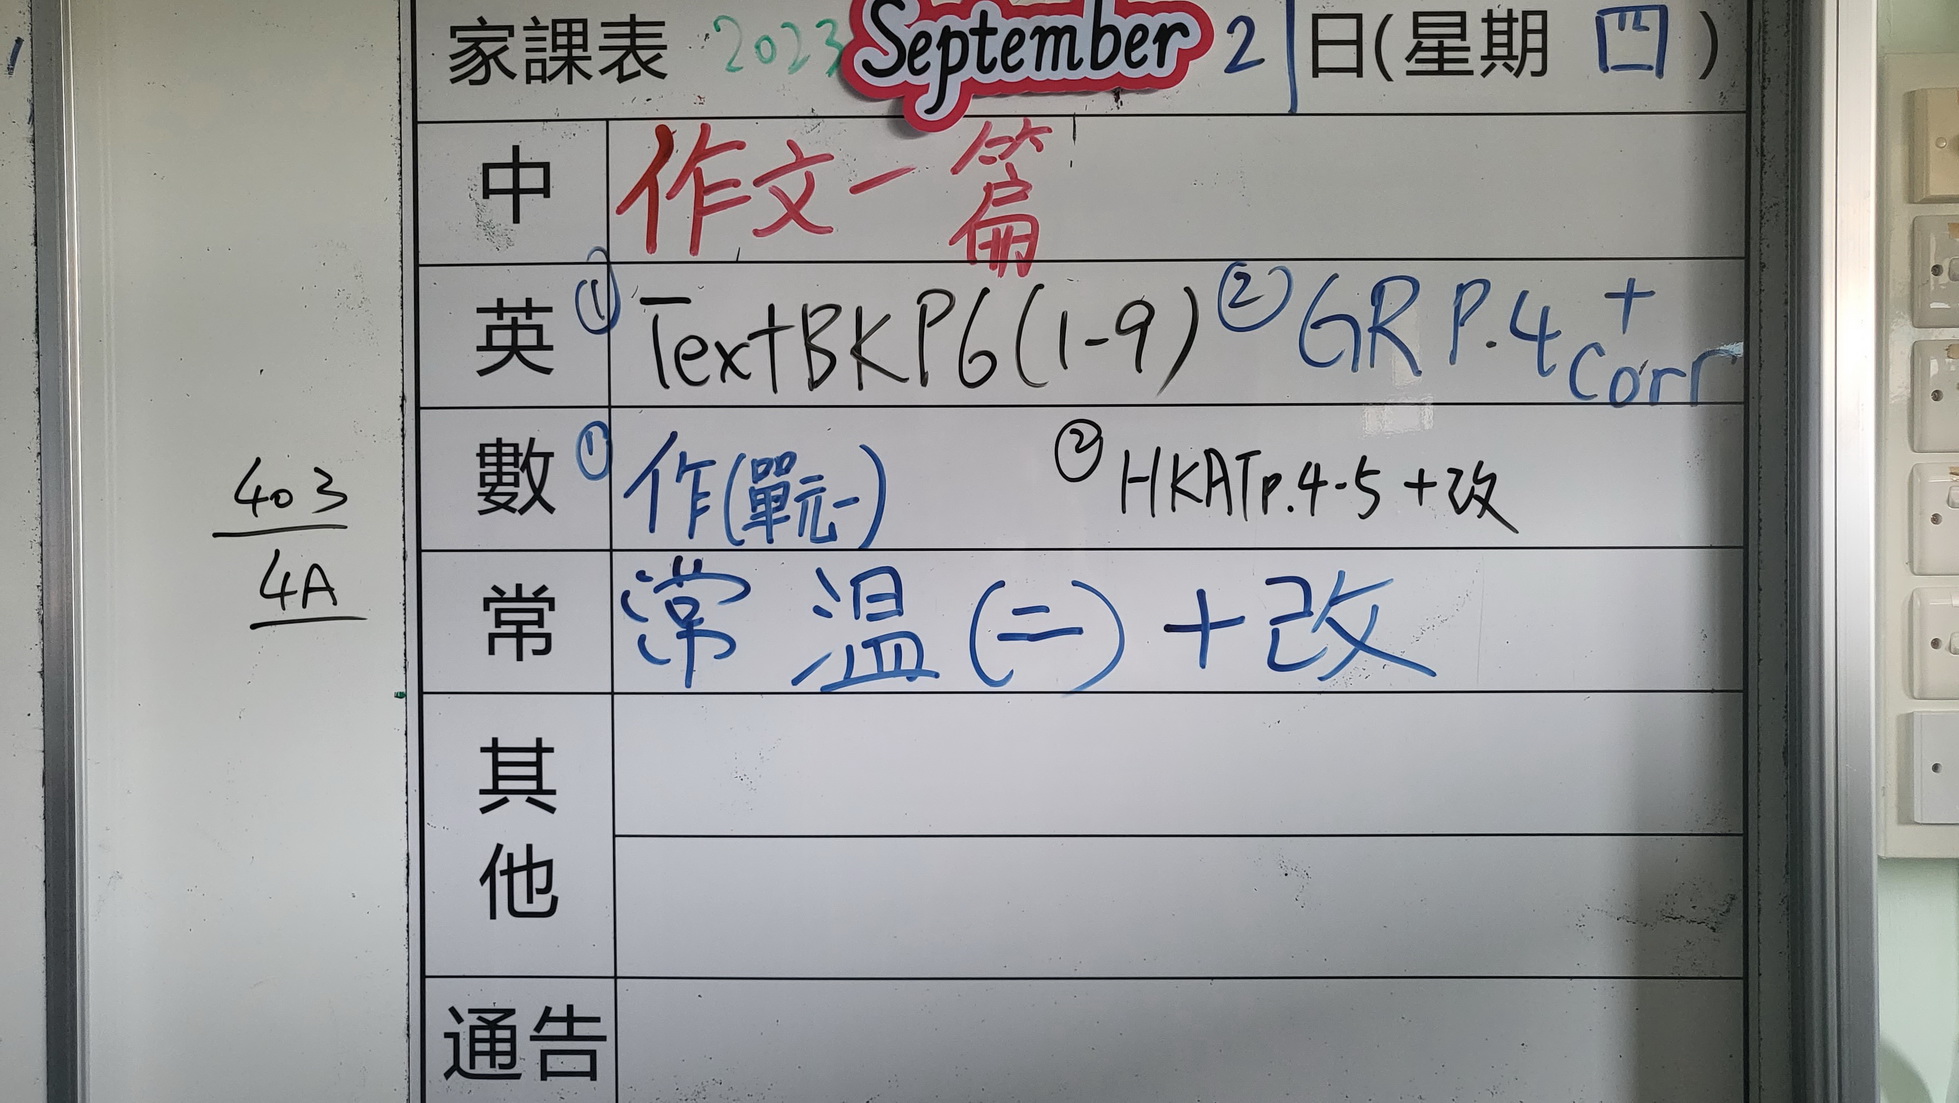 家課表 2023 September 21日(星期四)
中 作文一篇
英 ① TextBK P6(1-9) ② GR P.4 + Corr
數 ① 作(單元一) ② HKAT p.4-5 + 改
常 常温(二) + 改
其他
通告
403
4A